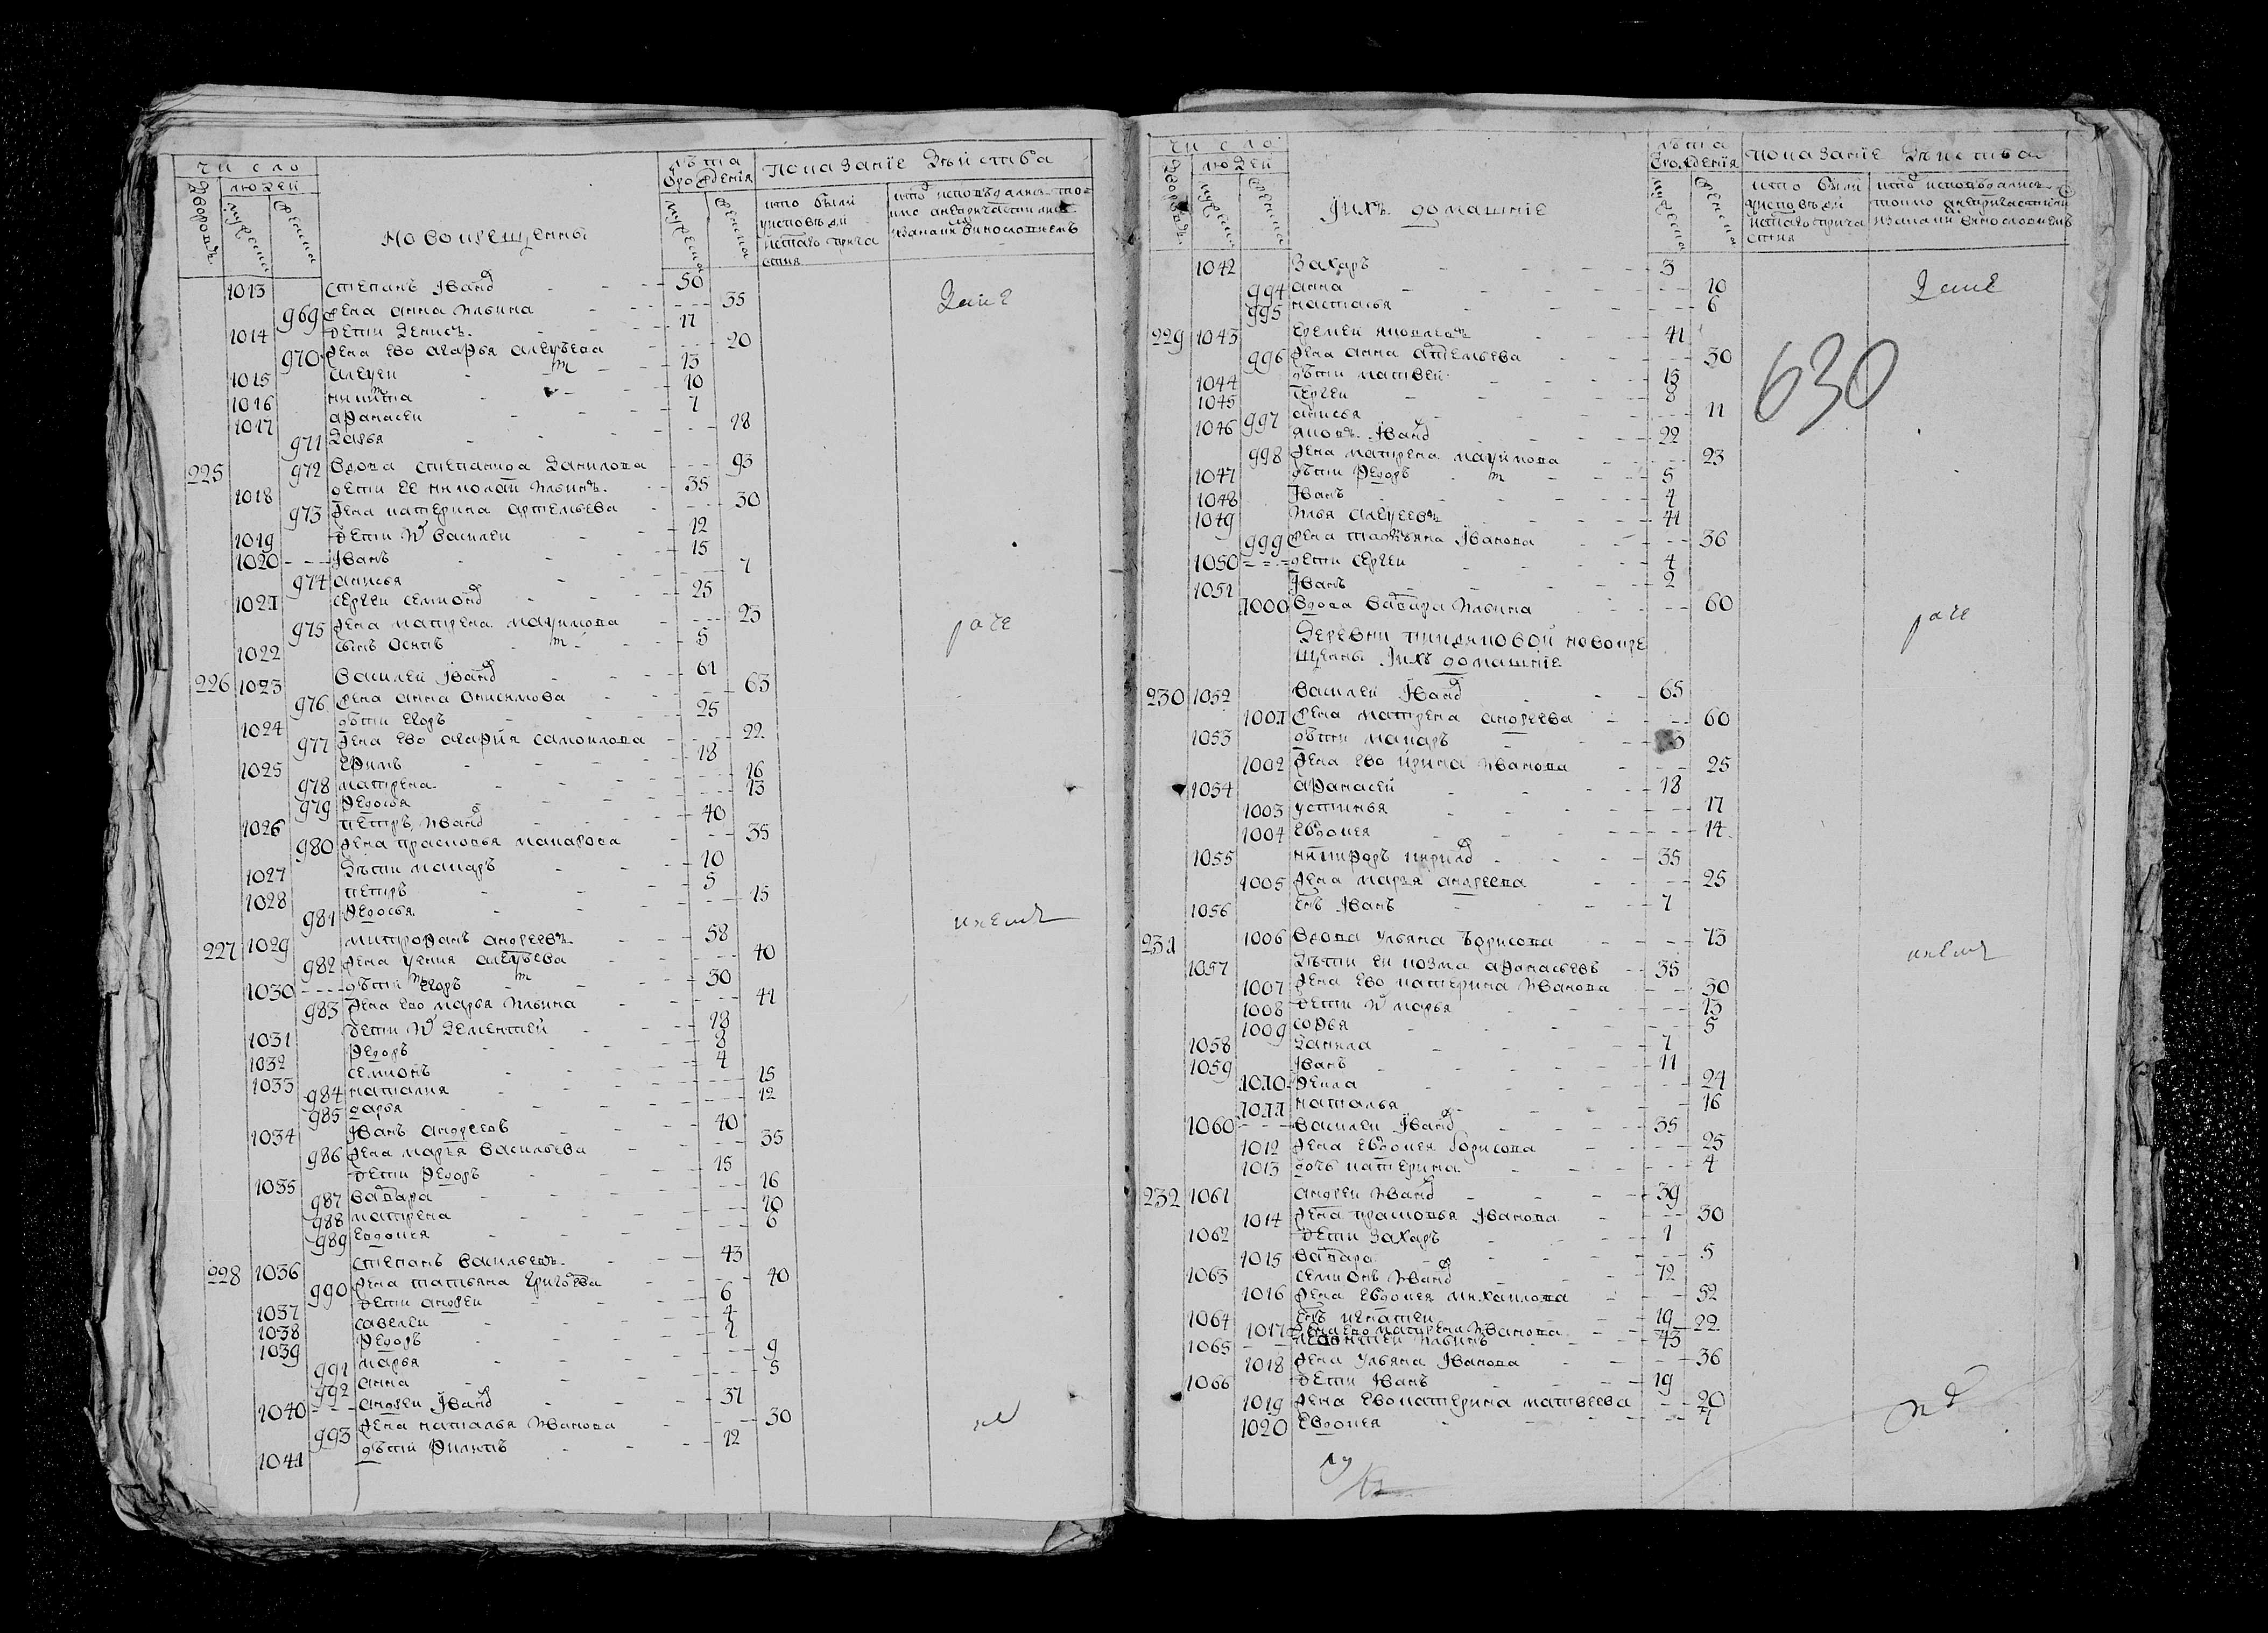 число
лѣта
показанїе действа
дворовъ
людей
ѿрожденїя
мужеска
женска
новокрещенны
мужеска
женска
кто были
у исповѣди
и святаго прича
стия
1013 степанъ Ивано 50
969 жена анна ильина 35
1014 дети денисъ 17
970 жена ево агафья алеѯѣева 20
1015 алеѯеи 13
1016 никита 10
1017 афанасеи 7
971 дарья 18
225 972 вдова степанида данилова 93
1018 дети ее николаи ильинъ 35
973 жена катерина артемьева 30
1019 дети их василеи 12
1020 Иванъ 15
974 анисья 7
1021 сергеи семионо 25
975 жена матрена маѯимова 23
1022 сынъ осипъ 5
226 1023 василеи Ивано 61
976 жена анна онисимова 63
1024 дѣти егоръ 25
977 жена ево агафия самоилова 22
1025 ефимъ 18
978 матрена 16
979 федосья 13
1026 петръ Ивано 40
980 жена прасковья макарова 35
1027 дѣти макаръ 10
1028 петръ 5
981 федосья 15
227 1029 митрофанъ андреевъ 58
982 жена ѯения алеѯѣева 40
1030 дѣти их егоръ 30
983 жена ево марья ильина 41
1031 дети их дементеи 18
1032 федоръ 8
1033 семионъ 4
984 наталия 15
985 дарья 12
1034 Иванъ андреевъ 40
986 жена марья васильева 35
1035 дети федоръ 15
987 варвара 16
988 матрена 10
989 евдокия 6
228 1036 степанъ васильевъ 43
990 жена татьяна григорева 40
1037 дети андреи 6
1038 савелеи 4
1039 федоръ 1
991 марья 9
992 анна 5
1040 андреи Ивано 37
993 жена наталья иванова 30
1041 дѣти филипъ 12
число
лѣта
показанїе дѣиства
дворовъ
людей
ѿрожденїя
мужеска
женска
Iихъ домашнїе
мужеска
женска
кто были
у исповѣди
и святаго прича
стия
1042 захаръ 3
994 анна 10
995 наталья 6
630
229 1043 еремеи яковлевъ 41
996 жена анна артемьева 30
1044 дѣти матвеи 15
1045 сергеи 8
997 анисья 11
1046 яковъ Ивано 22
998 жена матрена маѯимова 23
1047 дѣти федоръ 5
1048 Иванъ 4
1049 илья алеѯеевъ 41
999 жена татьяна Иванова 36
1050 дети сергеи 4
1051 Иванъ 2
1000 вдова варвара ильина 60
новокре
щенны Iихъ домашнїе
230 1052 василеи Ивано 65
1001 жена матрена андреева 60
1053 дѣти макаръ
1002 жена ево ирина иванова 25
1054 афанасеи 18
1003 устинья 17
1004 евдокея 14
1055 никифоръ кирило 35
1005 жена марья андреева 25
1056 сынъ Иванъ 7
231 1006 вдова ульяна борисова 73
1057 дѣти еи козма афонасьевъ 35
1007 жена ево катерина иванова 30
1008 дети их марья 13
1009 софья 5
1058 данила 7
1059 Иванъ 11
1010 фекла 24
1011 наталья 16
1060 василеи Ивано 35
1012 жена евдокея борисова 25
1013 дочь катерина 4
232 1061 андреи Ивано 39
1014 жена прасковья Иванова 30
1062 дети захаръ 1
1015 варвара 5
1063 семионъ Ивано 72
1016 жена евдокея михаилова 52
1064 сынъ игнатеи 19
1017 жена ево матрена Иванова 22
1065 ильинъ 43
1018 жена ульяна Иванова 36
1066 дети Иванъ 19
1019 жена ево катерина матвеева 20
1020 евдокея